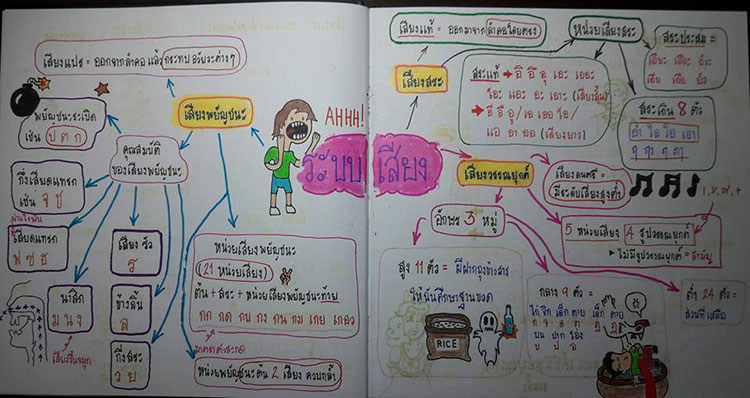 เสียงแปร = ออกจากลำคอแล้วกระทบอวัยวะต่างๆ
เสียงพยัญชนะ
พยัญชนะระเบิด
เช่น ป ต ก
คุณสมบัติ
ของเสียงพยัญชนะ
กึ่งเสียดแทรก
เช่น จ ช
เสียดแทรก
ฟ ซ ฮ
เสียง รัว
ร
นาสิก
ม น ง
เสียงขึ้นจมูก
ข้างลิ้น
ล
กึ่งสระ
ว ย
หน่วยเสียงพยัญชนะ
(21 หน่วยเสียง)
ต้น + สระ + หน่วยเสียงพยัญชนะท้าย
กก กด กบ กง กน กม เกย เกอว
มาตราตัวสะกด
หน่วยพยัญชนะต้น 2 เสียง ควบกล้ำ
AHHH!
ระบบเสียง
เสียงแท้ = ออกมาจากลำคอโดยตรง
เสียงสระ
หน่วยเสียงสระ
สระแท้ → อิ อึ อุ เอะ เออะ
โอะ แอะ อะ เอาะ (เสียงสั้น)
→ อี อือ อู / เอ เออ โอ /
แอ อา ออ (เสียงยาว)
สระประสม =
เอียะ เอือะ อัวะ
เอีย เอือ อัว
สระเกิน 8 ตัว
อำ ใอ ไอ เอา
ฤ ฤๅ ฦ ฦๅ
เสียงวรรณยุกต์
เสียงดนตรี =
มีระดับเสียงสูงต่ำ
5 หน่วยเสียง 4 รูปวรรณยุกต์
▸ ไม่มีรูปวรรณยุกต์ = สามัญ
อักษร 3 หมู่
สูง 11 ตัว = ผีฝากถุงข้าวสาร
ให้ฉันศึกษาฐานขวด
RICE
กลาง 9 ตัว =
ไก่ จิก เด็ก ตาย เด็ก ตาย
ก จ ด ต ฎ ฏ
บน ปาก โอ่ง
บ ป อ
ต่ำ 24 ตัว =
ส่วนที่เหลือ